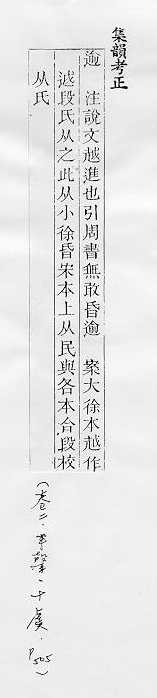 集韻考正
逾　注說文越進也引周書無敢昏逾　案大徐本越作
䢤段氏从之此从小徐昏宋本上从民與各本合段校
从氏
(卷二．平聲．十虞．P505)